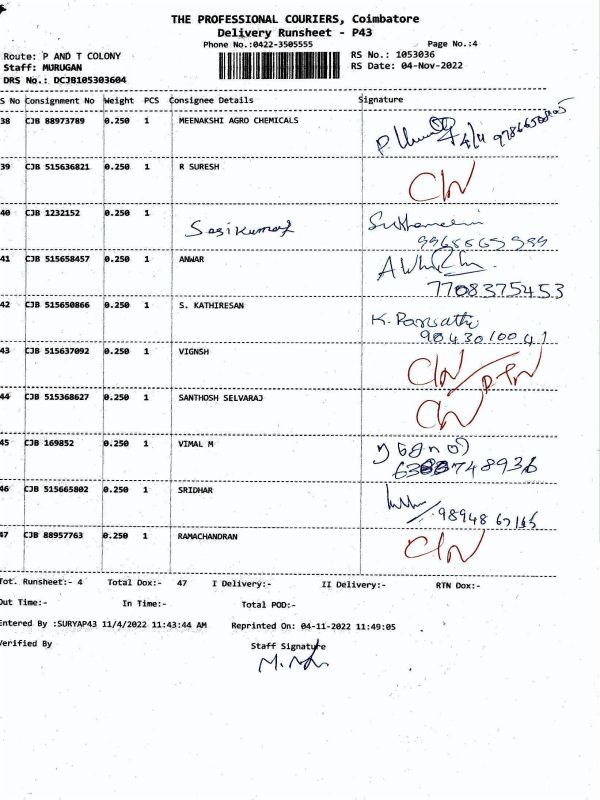 THE PROFESSIONAL COURIERS, Coimbatore
Delivery Runsheet - P43
Phone No.:0422-3505555
Page No.:4
Route: P AND T COLONY
RS No.: 1053036
Staff: MURUGAN
RS Date: 04-Nov-2022
DRS No.: DCJB105303604
S No Consignment No Weight PCS Consignee Details Signature
38 CJB 88973789 0.250 1 MEENAKSHI AGRO CHEMICALS
39 CJB 515636821 0.250 1 R SURESH
40 CJB 1232152 0.250 1 Sasikumar
41 CJB 515658457 0.250 1 ANWAR
7708375453
42 CJB 515650866 0.250 1 S. KATHIRESAN
K. Parvathi
9043010041
43 CJB 515637092 0.250 1 VIGNSH
44 CJB 515368627 0.250 1 SANTHOSH SELVARAJ
45 CJB 169852 0.250 1 VIMAL M
46 CJB 515665802 0.250 1 SRIDHAR
47 CJB 88957763 0.250 1 RAMACHANDRAN
Tot. Runsheet:- 4 Total Dox:- 47 I Delivery:- II Delivery:- RTN Dox:-
Out Time:- In Time:- Total POD:-
Entered By :SURYAP43 11/4/2022 11:43:44 AM Reprinted On: 04-11-2022 11:49:05
Verified By Staff Signature